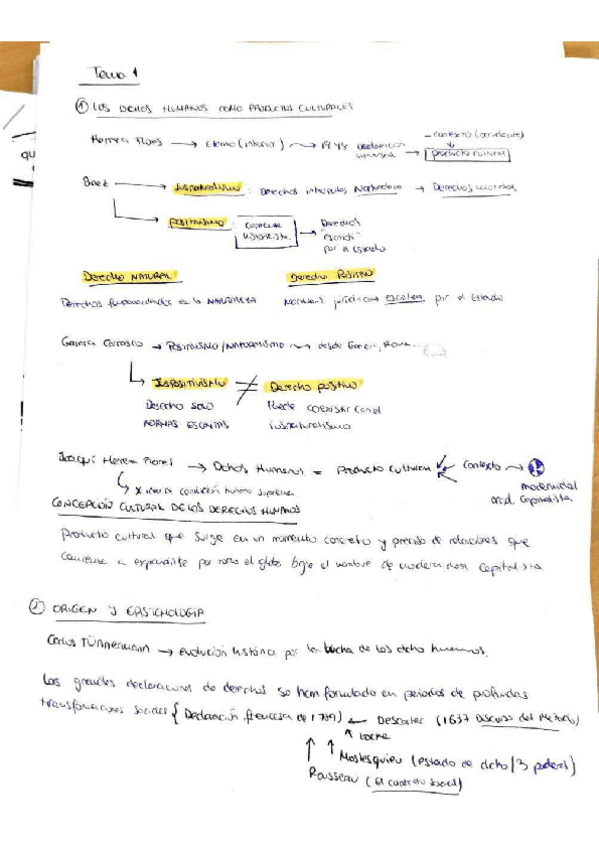 Tema 1
① LOS DCHOS HUMANOS COMO PRODUCTOS CULTURALES
Herrera Flores → Eterno (inherior) → 1948 Declaración universal → producto cultural
- contexto (occidente)
qu
→ Iusnaturalismo : Derechos inherentes Naturaleza → Derechos
→ POSITIVISMO : corriente → Derechos "escritos" por el Estado
Derecho NATURAL Derecho POSITIVO
Derechos fundamentados en la NATURALEZA Normas jurídicas escritas por el Estado
→ POSITIVISMO/NATURALISMO → desde Grecia, Roma...
→ IUSPOSITIVISMO ≠ Derecho positivo
Derecho solo Puede coexistir con el
NORMAS ESCRITAS iusnaturalismo
Joaquí Herrera Flores → Dchos Humanos = Producto cultural ← contexto →
condición humana modernidad
occd. Capitalista
CONCEPCIÓN CULTURAL DE LOS DERECHOS HUMANOS
Producto cultural que surge en un momento concreto y preciso de relaciones que
comienza a expandirse por todo el globo bajo el nombre de modernidad capitalista
② ORIGEN Y EPISTEMOLOGIA
Carlos Tünnermann → evolución histórica por la lucha de los dcho humanos.
Las grandes declaraciones de derechos se han formulado en periodos de profundas
transformaciones sociales { Declaración francesa de 1789) ← Descartes (1637 Discurso del Método)
↑ Locke
↑ Mostesquieu (estado de dcho/3 poderes)
↑ Rousseau (El contrato social)